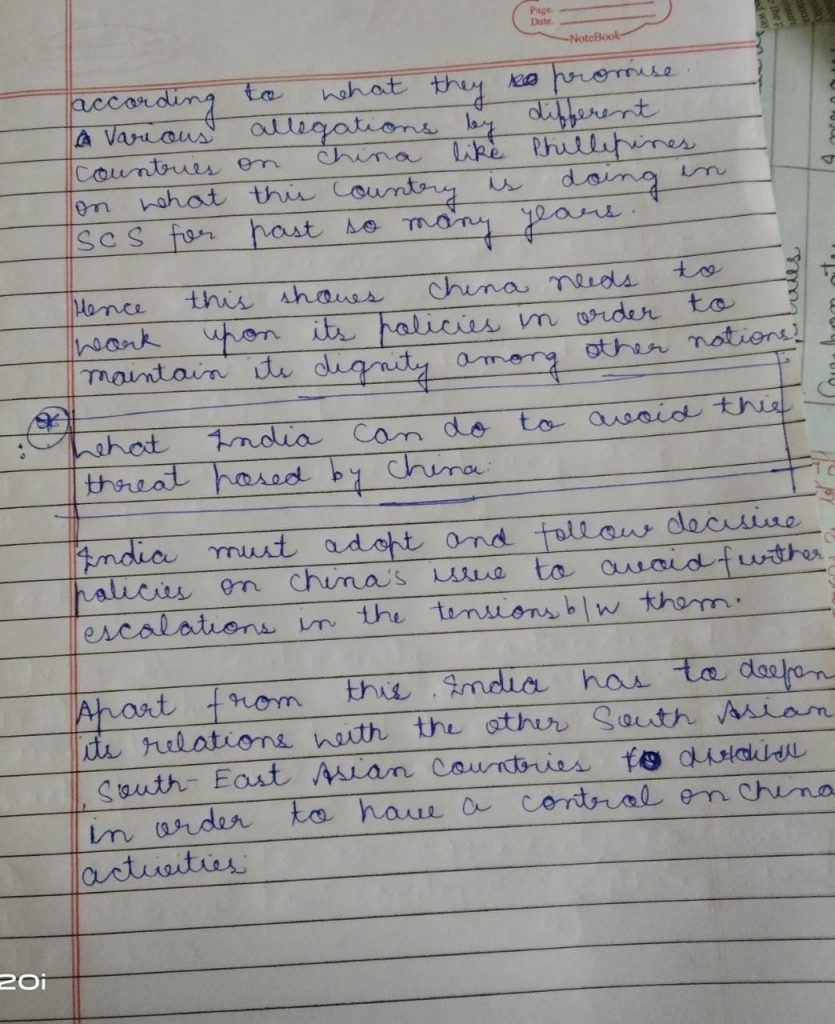 Page.
Date.
NoteBook
according to what they promise.
Various allegations by different
countries on china like Phillipines
on what this country is doing in
SCS for past so many years.
Hence this shows china needs to
work upon its policies in order to
maintain its dignity among other nations.
What India can do to avoid this
threat posed by China.
India must adopt and follow decisive
policies on china's issue to avoid further
escalations in the tensions b/w them.
Apart from this, India has to deepen
its relations with the other South Asian
, South-East Asian countries
in order to have a control on china
activities.
20i